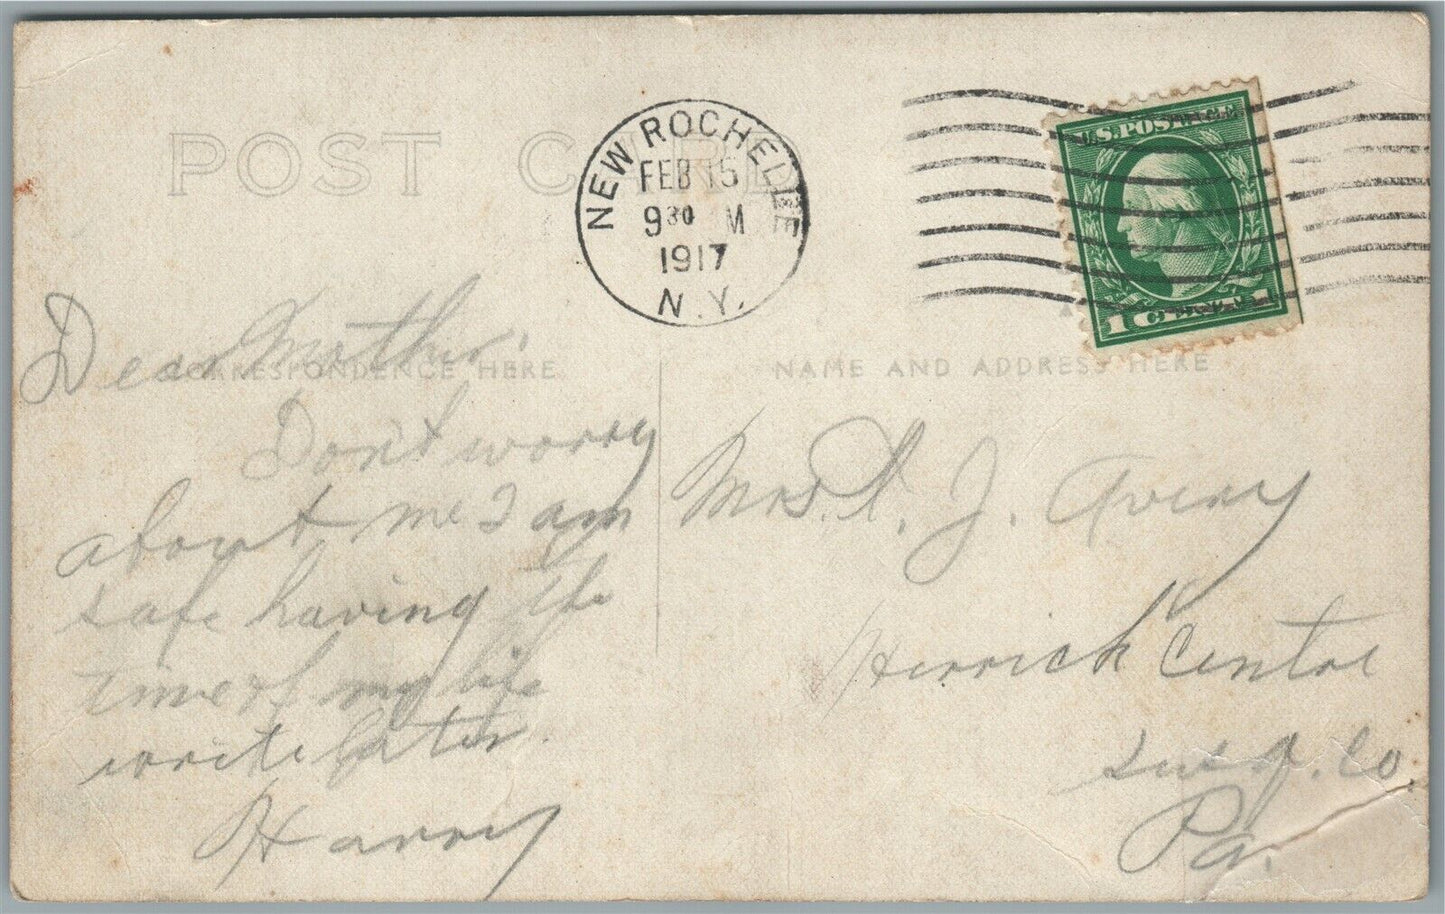 POST CARD
NEW ROCHELLE
FEB 15
9 30 M
1917
N.Y.
U.S. POSTAGE
1 CENTS 1
CORRESPONDENCE HERE
NAME AND ADDRESS HERE
Dear Mother.
Don't worry
about me I am
safe having the
time of my life
write later.
Harry
Mrs. A. J. Avery
Herrick Center
Susq. Co.
Pa.